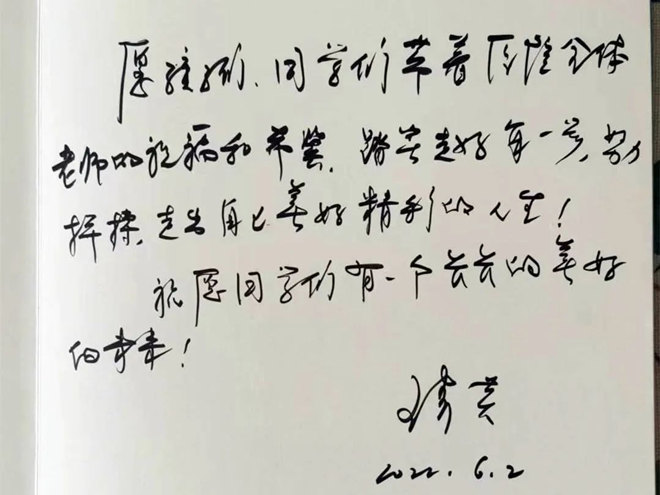 愿孩子们、同学们带着全体
老师的祝福和希冀，踏实走好每一步，努力
拼搏，走出自己美好精彩的人生！
祝愿同学们有一个长长的美好
的未来！
2022.6.2